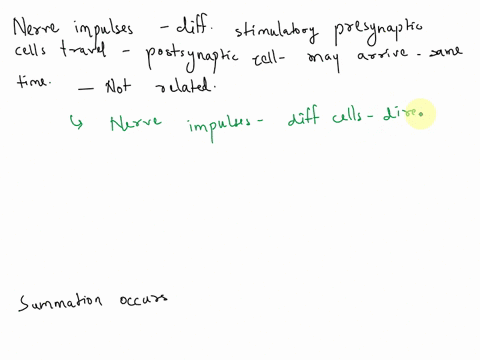 Nerve impulses - diff. stimulatory presynaptic
cells travel - postsynaptic cell - may arrive - same
time. - Not related.
↳ Nerve impulses - diff cells - dire
Summation occurs